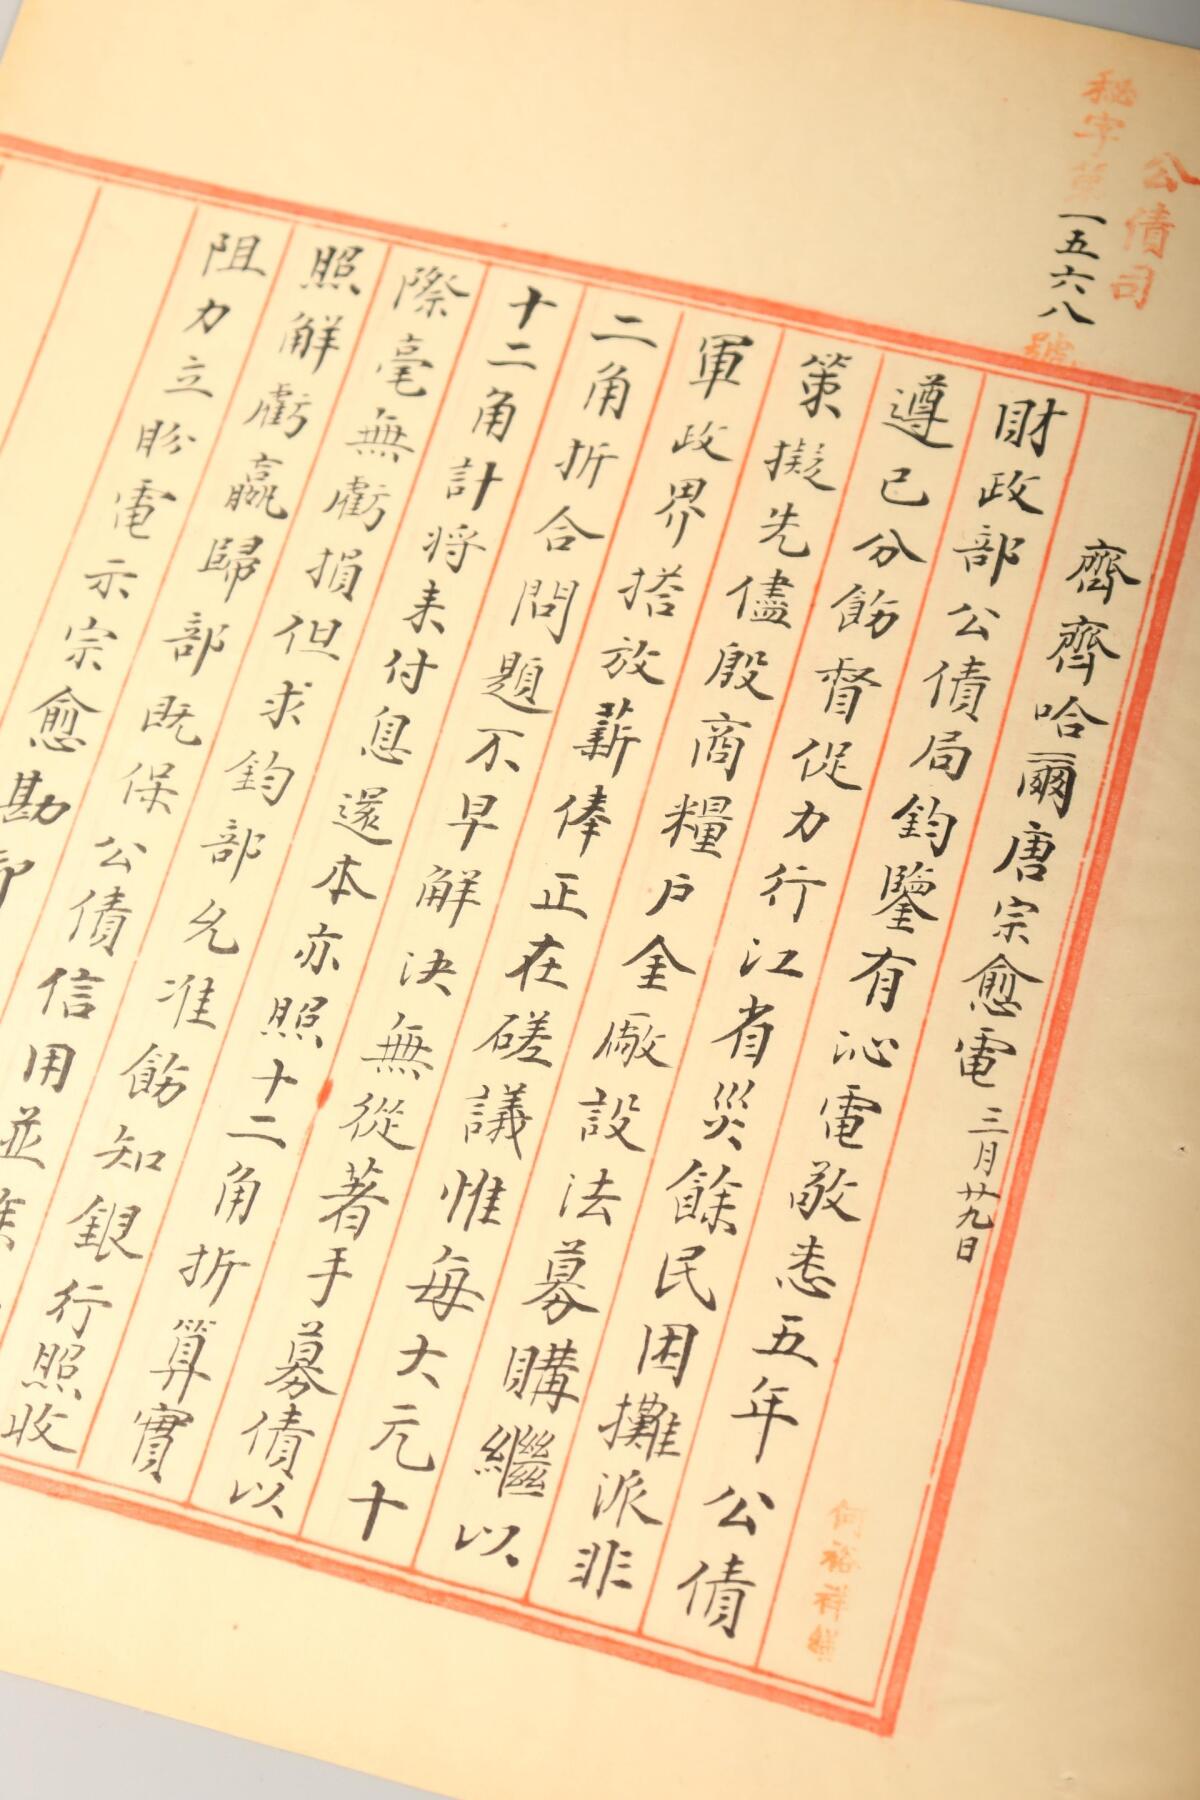 公債司
秘字第一五六八號
齊齊哈爾唐宗愈電 三月廿九日
財政部公債局鈞鑒有沁電敬悉五年公債
遵已分飭督促力行江省災餘民困攤派非
策擬先儘殷商糧戶金廠設法募購繼以
軍政界搭放薪俸正在磋議惟每大元十
二角折合問題不早解決無從著手募債以
十二角計將来付息還本亦照十二角折算實
際毫無虧損但求鈞部允准飭知銀行照收
照解虧贏歸部既保公債信用並
阻力立盼電示宗愈勘印
何裕祥繕